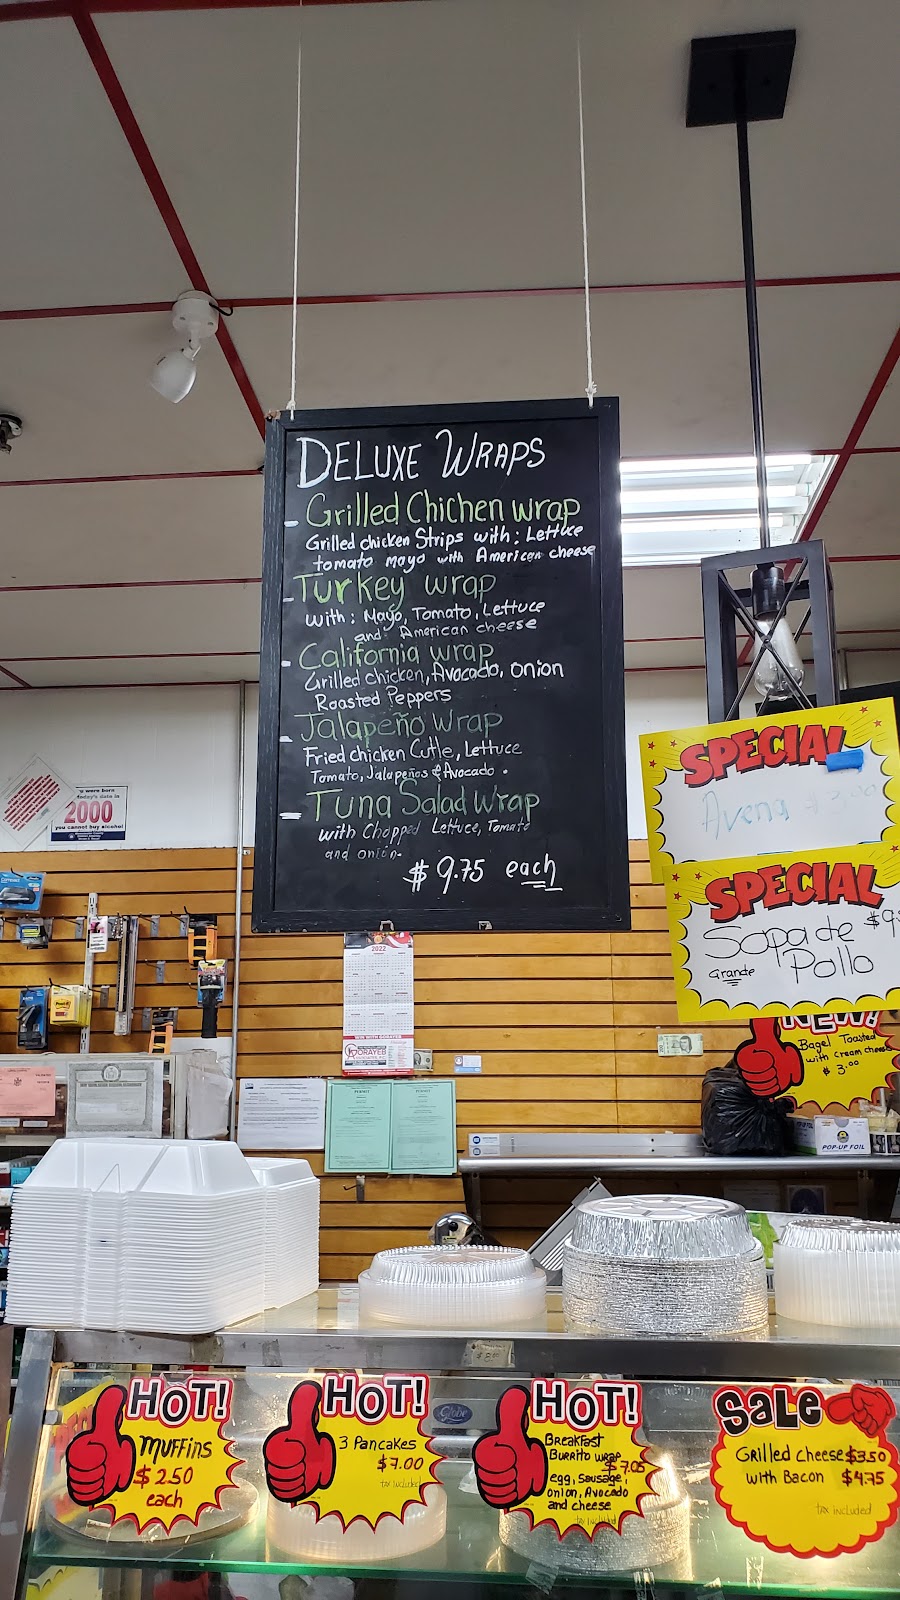 DELUXE WRAPS
Grilled Chichen wrap
Grilled chicken Strips with: Lettuce
tomato mayo with American cheese
Turkey wrap
with: Mayo, Tomato, Lettuce
and American cheese
California wrap
Grilled chicken, Avocado, onion
Roasted Peppers
Jalapeño wrap
Fried chicken Cutle, Lettuce
Tomato, Jalapeños & Avocado.
Tuna Salad Wrap
with Chopped Lettuce, Tomato
and onion-
$ 9.75 each
SPECIAL
Avena
SPECIAL
Sopa de
Grande Pollo
NEW!
Bagel Toasted
with cream cheese
$ 3.00
2000
you cannot buy alcohol
2022
PERMIT
PERMIT
POP-UP FOIL
HOT!
MUFFINS
$ 2.50
each
HOT!
3 Pancakes
$7.00
tax included
HOT!
BREAKFAST
BURRITO WRAP
$7.05
egg, sausage,
onion, Avocado
and cheese
tax included
SALE
Grilled Cheese $3.50
with Bacon $4.75
tax included
Globe